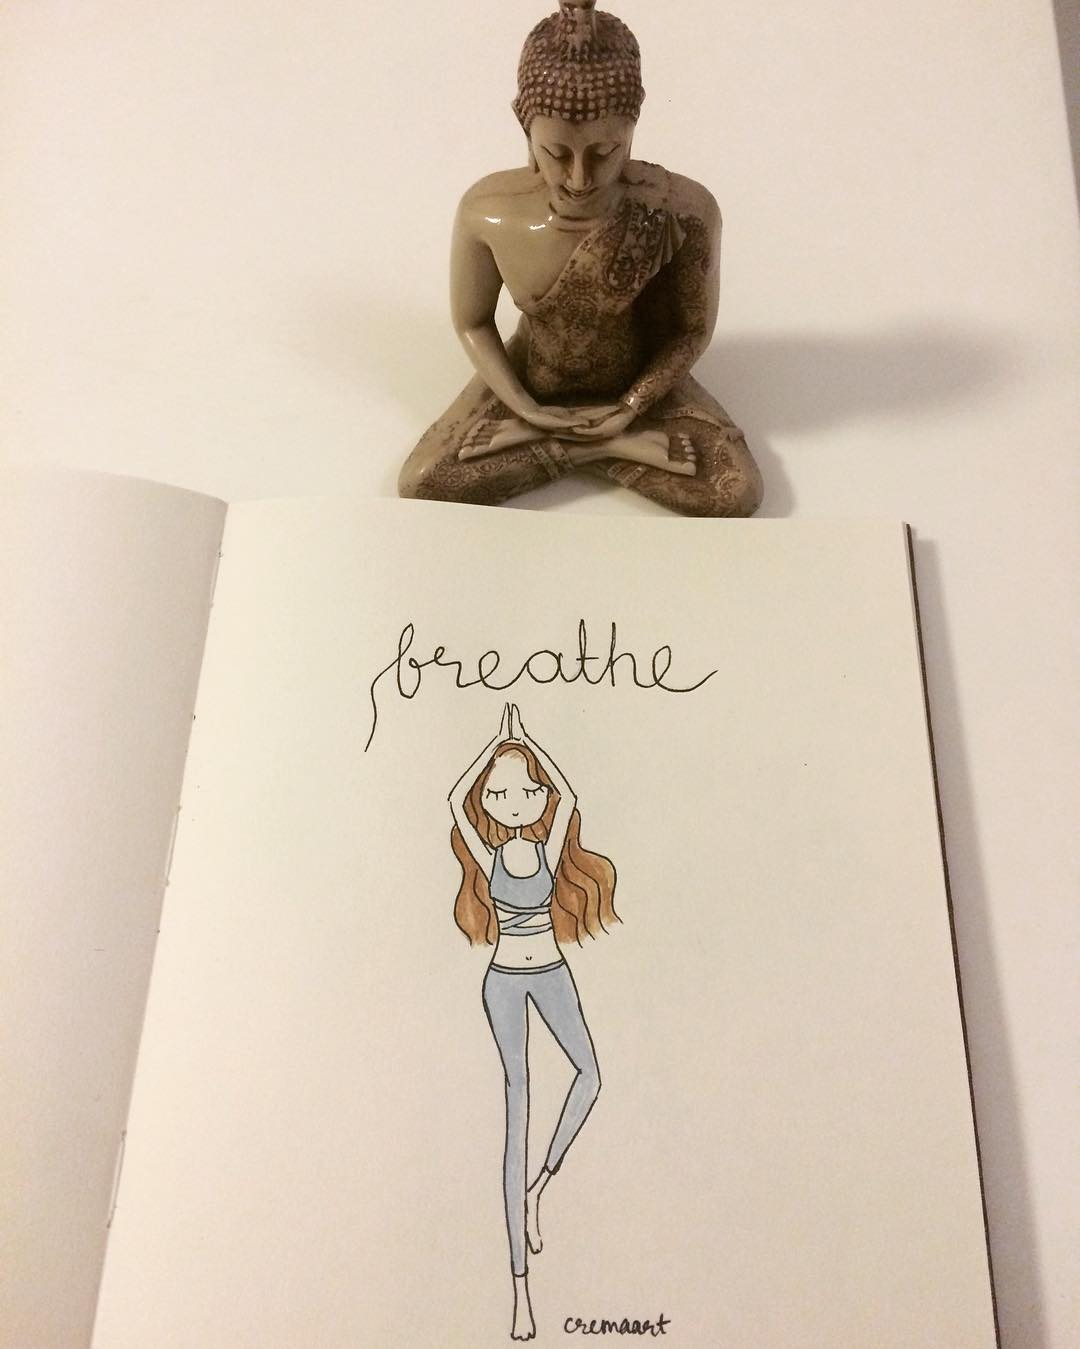 breathe
cremaart